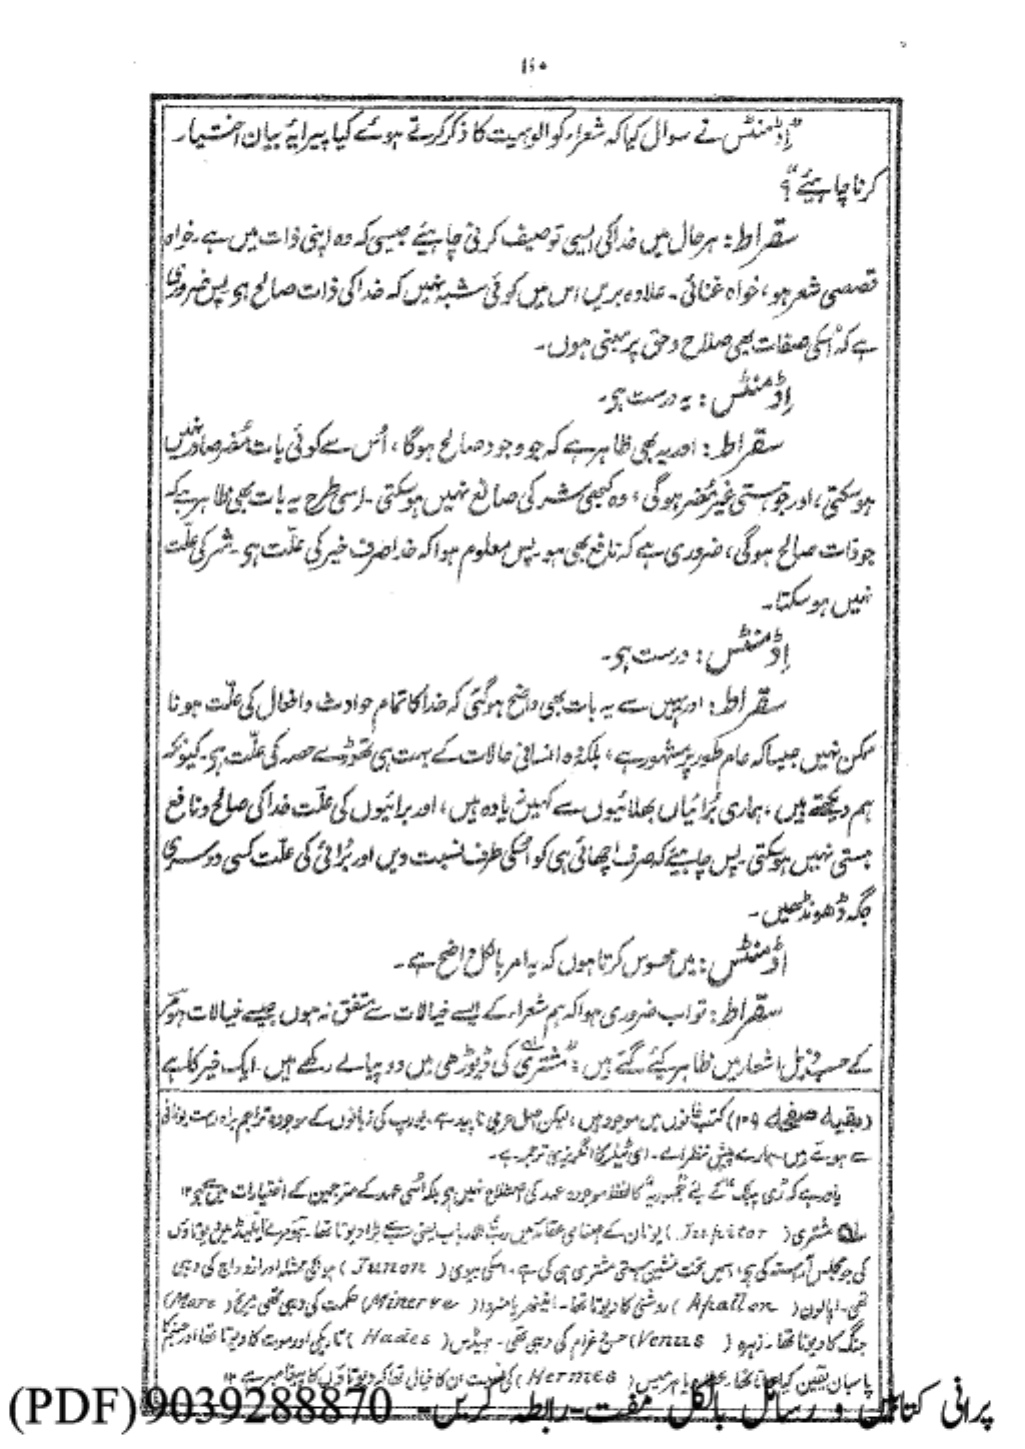 ۱۵۰
"اِڈمنٹس نے سوال کیا کہ شعراء کو الوہیت کا ذکر کرتے ہوئے کیا پیرایۂ بیان اختیار
کرنا چاہیئے"؟
سقراط: ہر حال میں خدا کی ایسی توصیف کرنی چاہیئے جیسی کہ وہ اپنی ذات میں ہے۔ خواہ
قصصی شعر ہو، خواہ غنائی۔ علاوہ بریں اس میں کوئی شبہ نہیں کہ خدا کی ذات صالح ہی پس ضروری
ہے کہ اُسکی صفات بھی صلاح و حق پر مبنی ہوں۔
اِڈمنٹس: یہ درست ہی۔
سقراط: اور یہ بھی ظاہر ہے کہ جو وجود صالح ہوگا، اُس سے کوئی بات مُضر صادر نہیں
ہو سکتی، اور جو ہستی غیر مُضر ہوگی، وہ کبھی شر کی صانع نہیں ہو سکتی۔ اسی طرح یہ بات بھی ظاہر ہے کہ
جو ذات صالح ہوگی، ضروری ہے کہ نافع بھی ہو۔ پس معلوم ہوا کہ خدا صرف خیر کی علّت ہی۔ شر کی علّت
نہیں ہو سکتا۔
اِڈمنٹس: درست ہی۔
سقراط: اور یہیں سے یہ بات بھی واضح ہو گئی کہ خدا کا تمام حوادث و افعال کی علّت ہونا
ممکن نہیں جیسا کہ عام طور پر مشہور ہے، بلکہ وہ انسانی حالات کے بہت ہی تھوڑے حصہ کی علّت ہی۔ کیونکہ
ہم دیکھتے ہیں، ہماری بُرائیاں بھلائیوں سے کہیں زیادہ ہیں، اور برائیوں کی علّت خدا کی صالح و نافع
ہستی نہیں ہو سکتی۔ پس چاہیئے کہ صرف اچھائی ہی کو اُسکی طرف نسبت دیں اور بُرائی کی علّت کسی دوسری
جگہ ڈھونڈھیں۔
اڈمنٹس: میں محسوس کرتا ہوں کہ یہ امر بالکل واضح ہے۔
سقراط: تو اب ضروری ہوا کہ ہم شعراء کے ایسے خیالات سے متفق نہ ہوں جیسے خیالات ہومر
کے حسب ذیل اشعار میں ظاہر کیئے گئے ہیں: "مشتری کی ڈیوڑھی میں دو پیالے رکھے ہیں۔ ایک خیر کا ہے
(بقیہ صفحہ ۱۰۹) کتب خانوں میں موجود ہیں، لیکن اصل عربی ناپید ہے۔ یورپ کی زبانوں کے موجودہ تراجم براہ راست یونانی
سے ہوئے ہیں۔ ہمارے پیش نظر اے۔ ای ٹیلر کا انگریزی ترجمہ ہے۔
یاد رہے کہ "ری پبلک" کے لیے "جمہوریہ" کا لفظ موجودہ عہد کی اصطلاح نہیں ہی بلکہ اُسی عہد کے مترجمین کے اختیارات میں سے ہی ۱۲
مشتری (Jupitor) یونان کے اصنامی عقائد میں ربّ الارباب یعنی سب سے بڑا دیوتا تھا۔ ہومر نے ایلیڈ میں دیوتاؤں
کی جو مجلس آراستہ کی ہی، اسمیں تخت نشین ہستی مشتری ہی کی ہے۔ اسکی بیوی (Junon) جونو
تھی۔ اپالون (Apallon) روشنی کا دیوتا تھا۔ (Minerve) حکمت کی دیبی تھی مریخ (Mars)
جنگ کا دیوتا تھا۔ زہرہ (Venus) حسن و غرام کی دیبی تھی۔ ہیڈس (Hades) تاریکی اور موت کا دیوتا تھا اور جہنم کا
پاسبان یقین کیا جاتا تھا۔ ہرمیس (Hermes) کی نسبت ان کا خیال تھا کہ دیوتاؤں کا پیغامبر ہے ۱۲
پرانی کتابیں و رسائل بالکل مفت-رابطہ کریں- 9039288870(PDF)